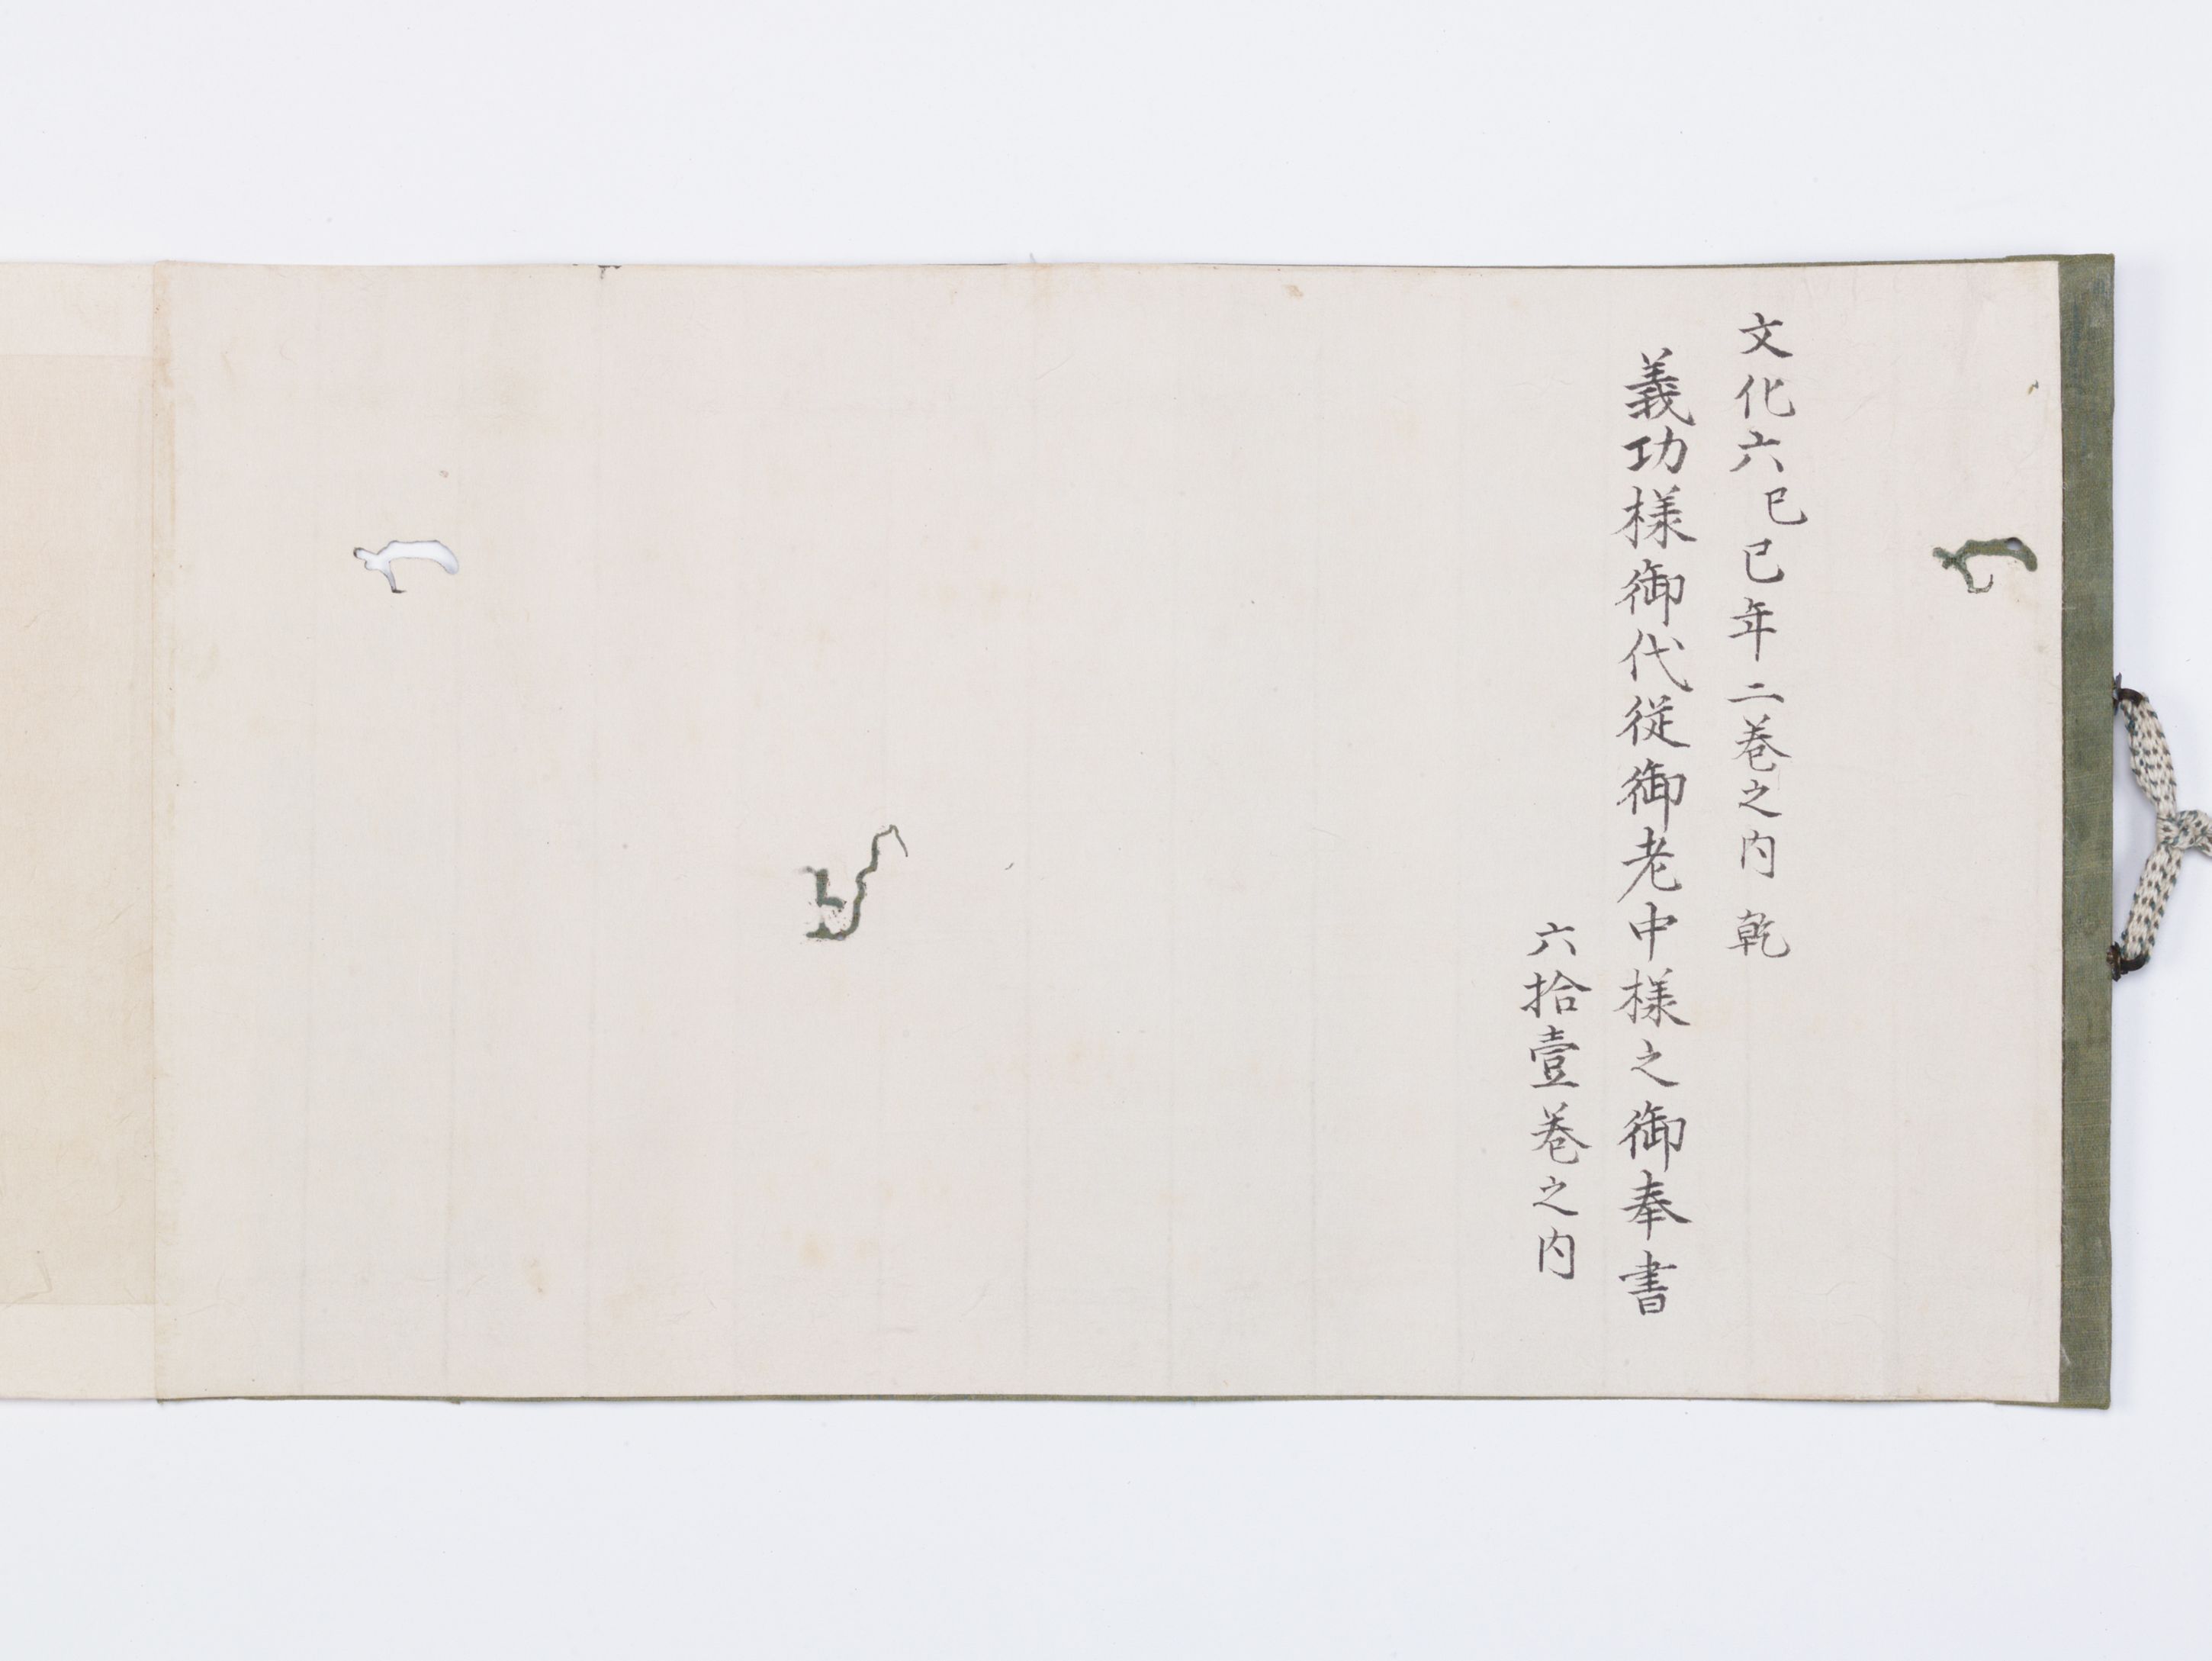 文化六己巳年二巻之内 乾
義功様御代従御老中様之御奉書
六拾壹巻之内